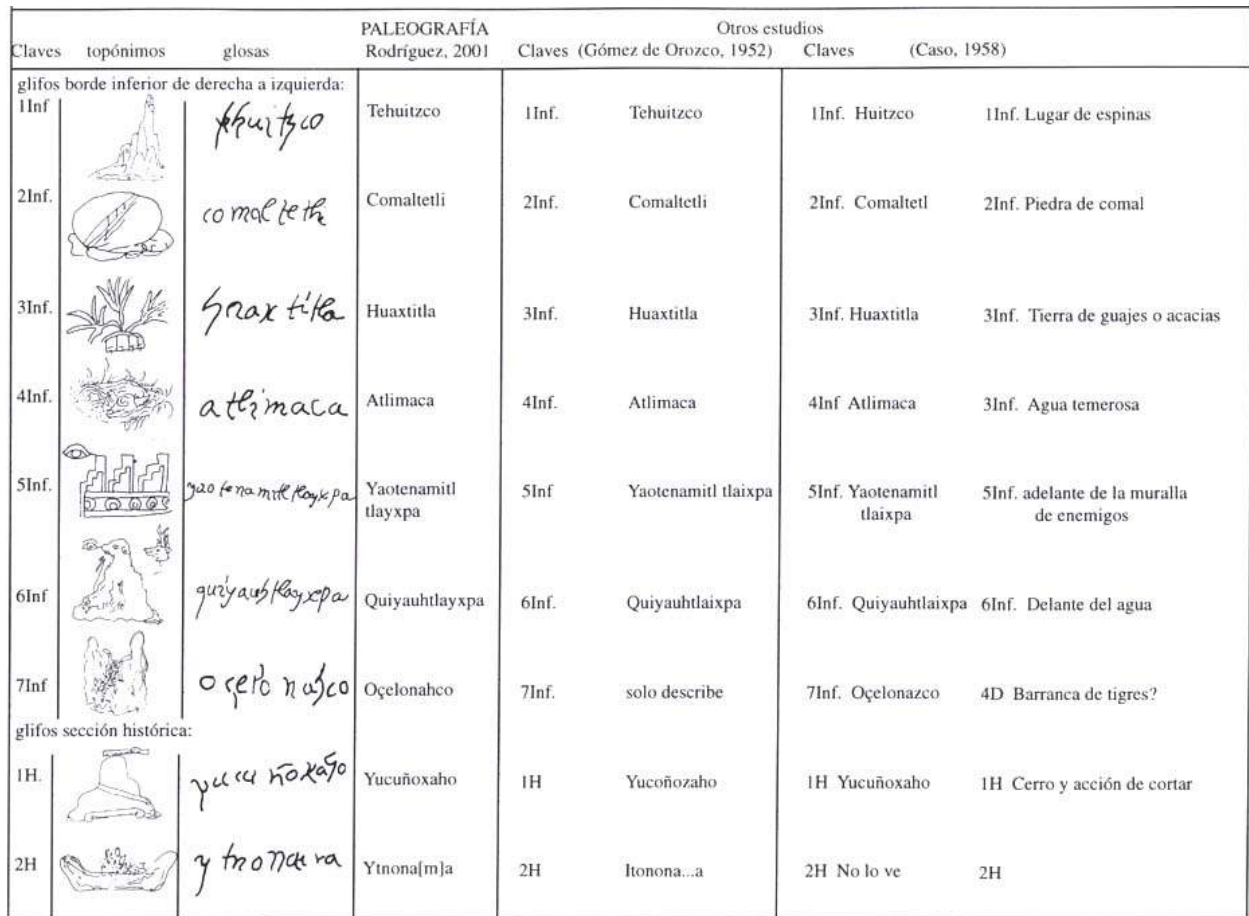 PALEOGRAFÍA Otros estudios
Claves topónimos glosas Rodríguez, 2001 Claves (Gómez de Orozco, 1952) Claves (Caso, 1958)
glifos borde inferior de derecha a izquierda:
1Inf tehuitzco Tehuitzco 1Inf. Tehuitzco 1Inf. Huitzco 1Inf. Lugar de espinas
2Inf. comaltetli Comaltetli 2Inf. Comaltetli 2Inf. Comaltetl 2Inf. Piedra de comal
3Inf. huaxtitla Huaxtitla 3Inf. Huaxtitla 3Inf. Huaxtitla 3Inf. Tierra de guajes o acacias
4Inf. atlimaca Atlimaca 4Inf. Atlimaca 4Inf Atlimaca 3Inf. Agua temerosa
5Inf. yaotenamitl tlayxpa Yaotenamitl 5Inf Yaotenamitl tlaixpa 5Inf. Yaotenamitl 5Inf. adelante de la muralla
tlayxpa tlaixpa de enemigos
6Inf quiyauhtlayxpa Quiyauhtlayxpa 6Inf. Quiyauhtlaixpa 6Inf. Quiyauhtlaixpa 6Inf. Delante del agua
7Inf oçelonahco Oçelonahco 7Inf. solo describe 7Inf. Oçelonazco 4D Barranca de tigres?
glifos sección histórica:
1H. yucuñoxaho Yucuñoxaho 1H Yucoñozaho 1H Yucuñoxaho 1H Cerro y acción de cortar
2H Ytnona[m]a 2H Itonona...a 2H No lo ve 2H